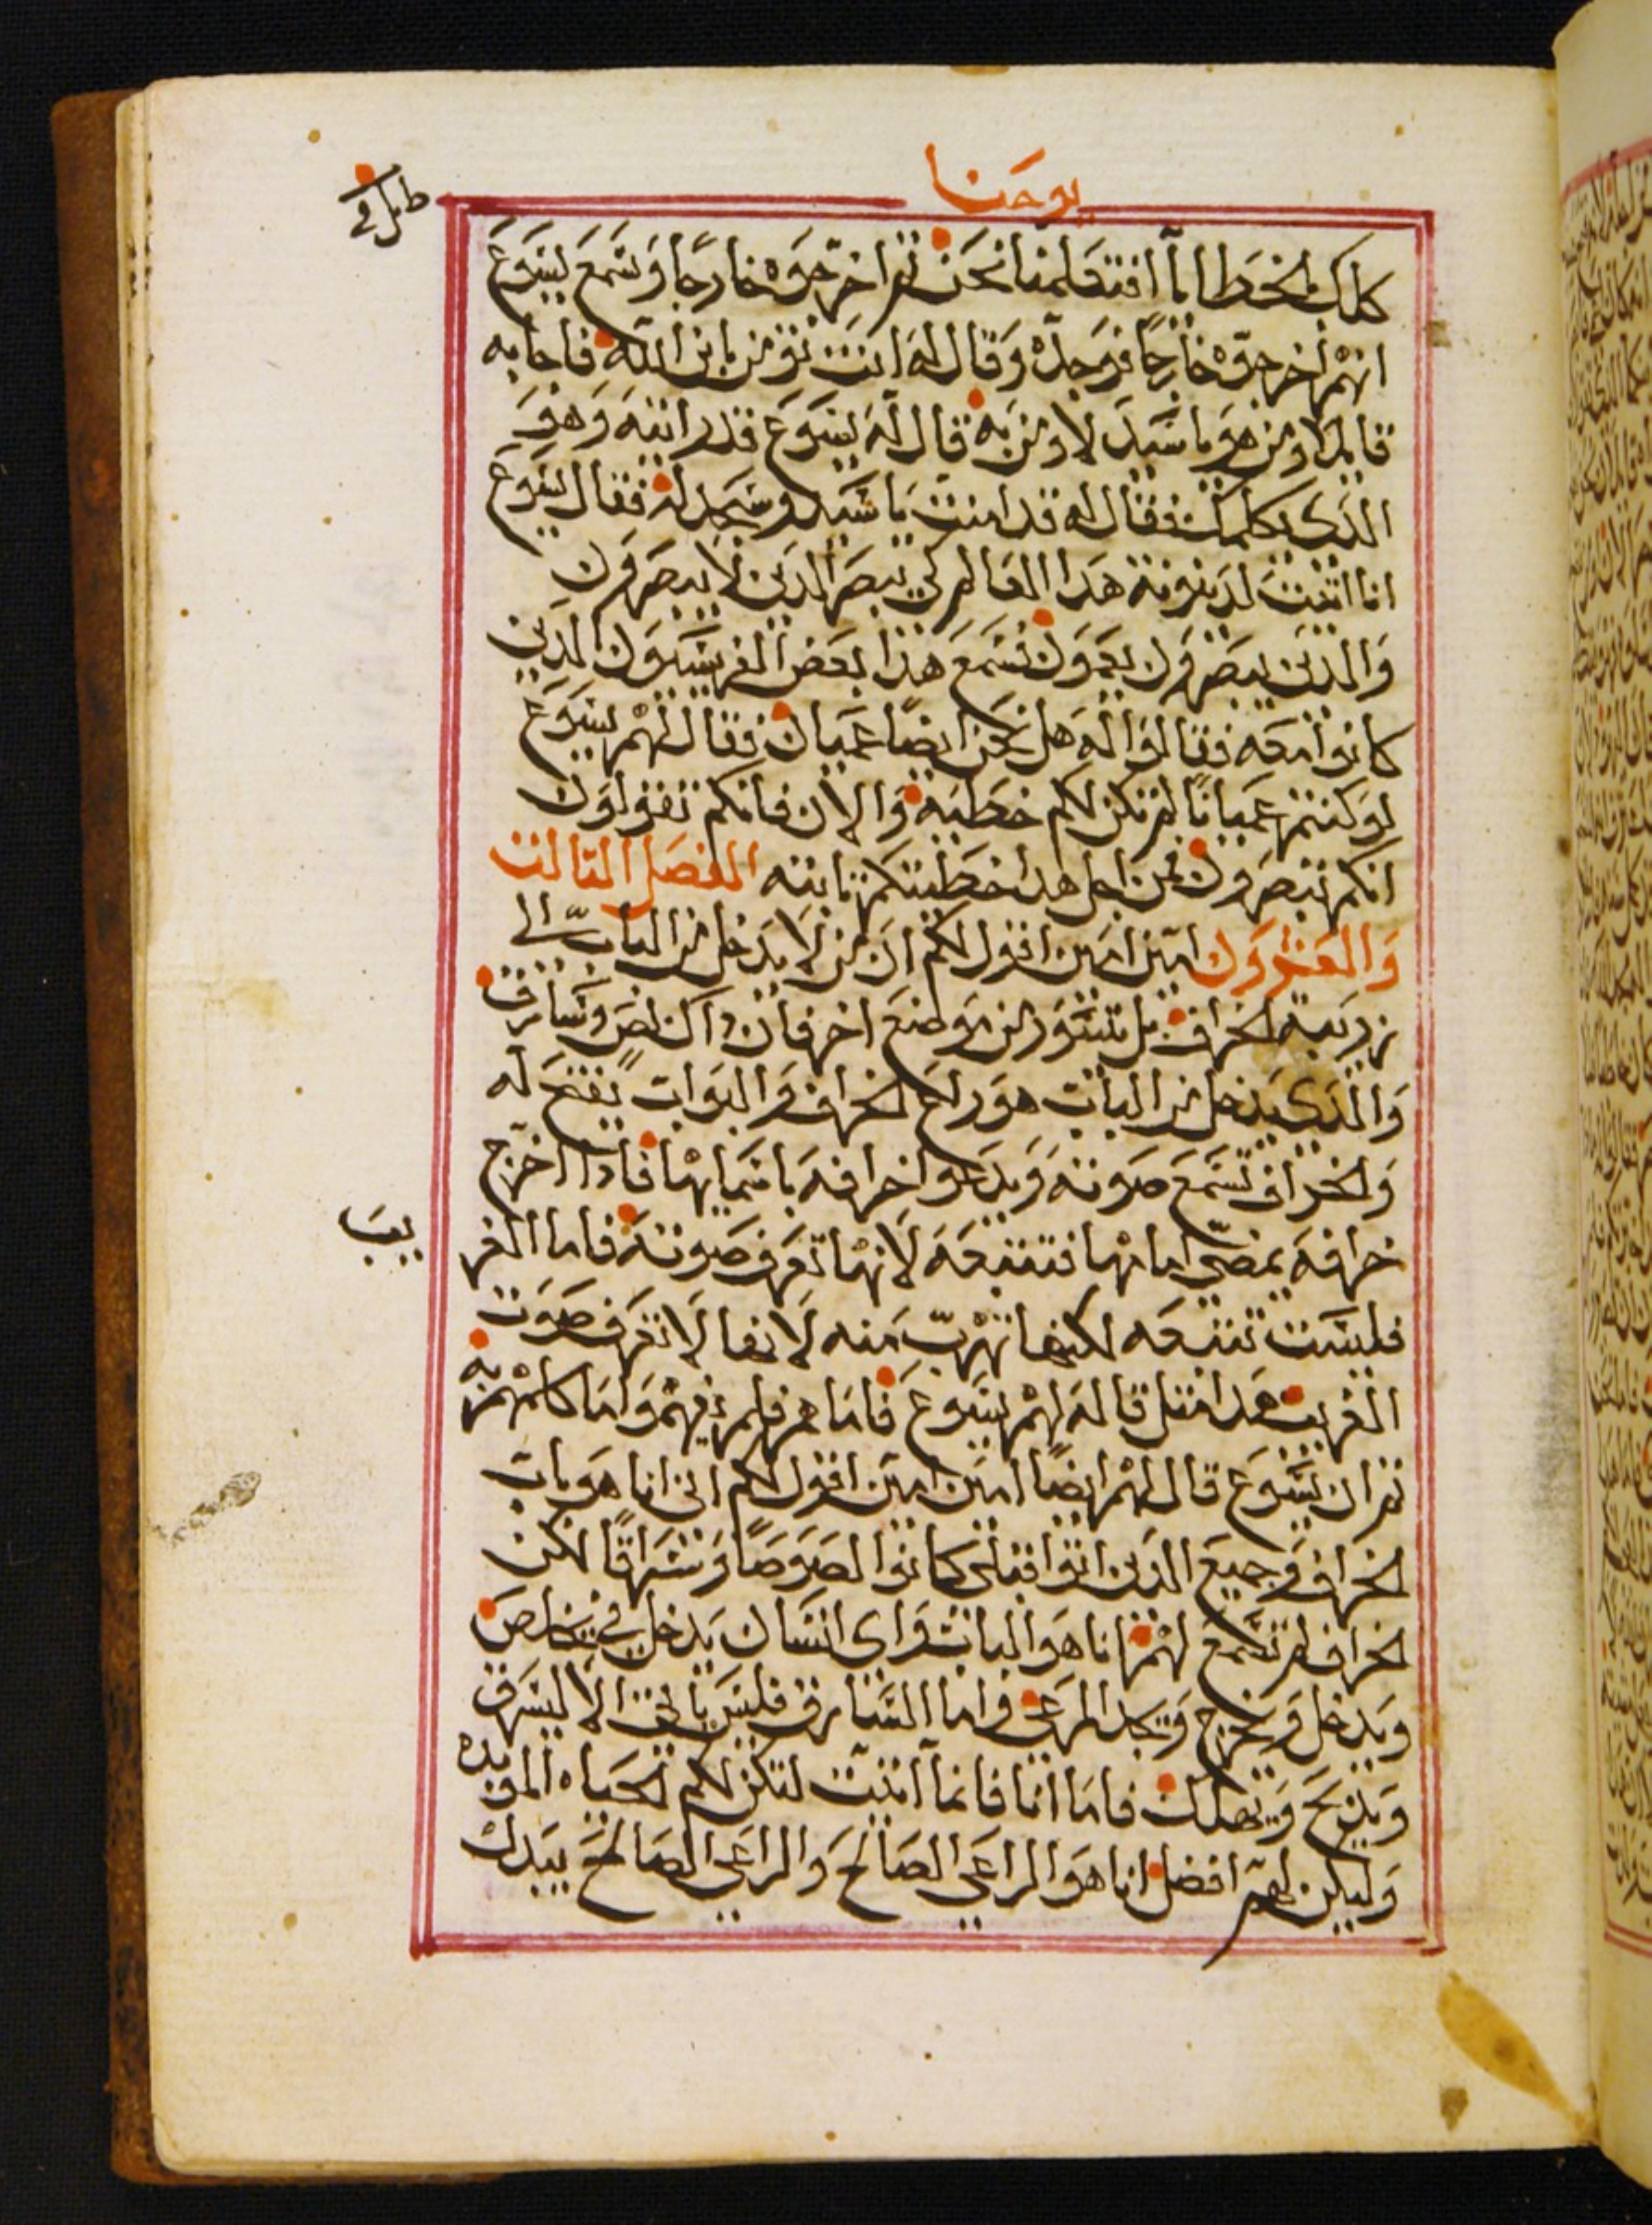 يوحنا
كلك بالخطايا افتعلمنا نحن ثم اخرجوه خارجا وسمع يسوع
انهم اخرجوه خارجا فوجده وقال له انت تؤمن بابن الله فاجابه
قايلا ومن هو يا سيد لاومن به قال له يسوع قد رايته وهو
الذى يكلمك فقال له قد امنت يا سيد وسجد له فقال يسوع
انا اتيت لدينونة هدا العالم لكي يبصر الدين لا يبصرون
والدين يبصرون يعمون فسمع هذا بعض الفريسيون الدين
كانوا معه فقالوا له هل نحن ايضا عميان فقال لهم يسوع
لو كنتم عميانا لم تكن لكم خطيه والان فانكم تقولون
انكم تبصرون فمن اجل هدا خطيتكم ثابته الفصل الثالث
والعشرون امين امين اقول لكم ان من لا يدخل من الباب الى
زريبة الخراف بل يتسور من موضع اخر فان داك لص وسارق
والذى يدخل من الباب هو راعى الخراف والبواب يفتح له
والخراف تسمع صوته ويدعوا خرافه باسمايها فادا اخرج
خرافه يمضي امامها فتتبعه لانها تعرف صوته فاما الغر
يب
فليست تتبعه لكنها تهرب منه لانها لا تعرف صوت
الغريب هدا مثل قاله لهم يسوع فاما هم فلم يفهموا ما كلمهم به
ثم ان يسوع قال لهم ايضا امين امين اقول لكم انى انا هو باب
الخراف وجميع الدين اتوا قبلى كانوا لصوصا وسراقا لكن
الخراف لم تسمع لهم انا هو الباب واى انسان يدخل بي يخلص
ويدخل ويخرج ويجد المرعى واما السارق فليس ياتى الا ليسرق
ويذبح ويهلك فاما انا فانما اتيت لتكن لكم الحياه الموبده
وليكن لهم افضل انا هو الراعي الصالح والراعي الصالح يبدل